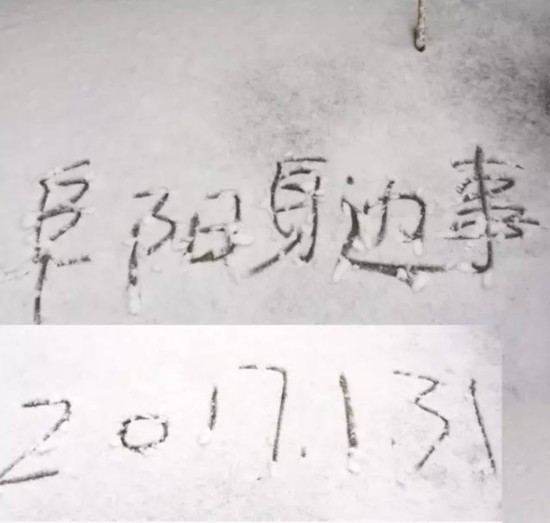 阜阳身边事
2017.1.31